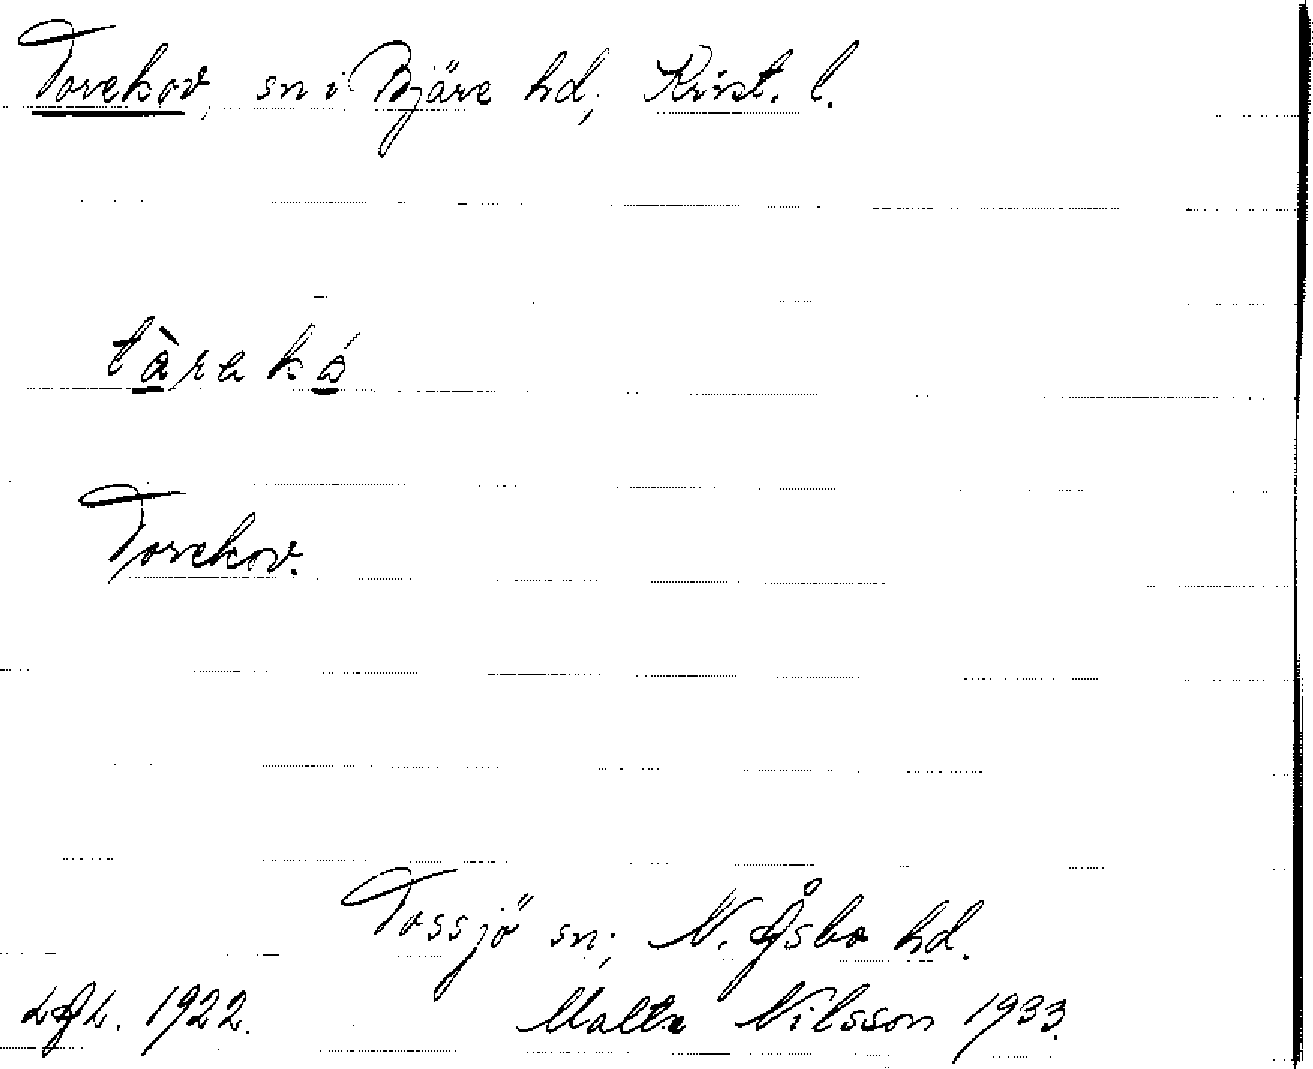 Torekov, sn i Bjäre hd, Krist. l.
tàrekó
Torekov.
Tossjö sn, N. Åsbo hd.
LAL. 1922. Malte Nilsson 1933.